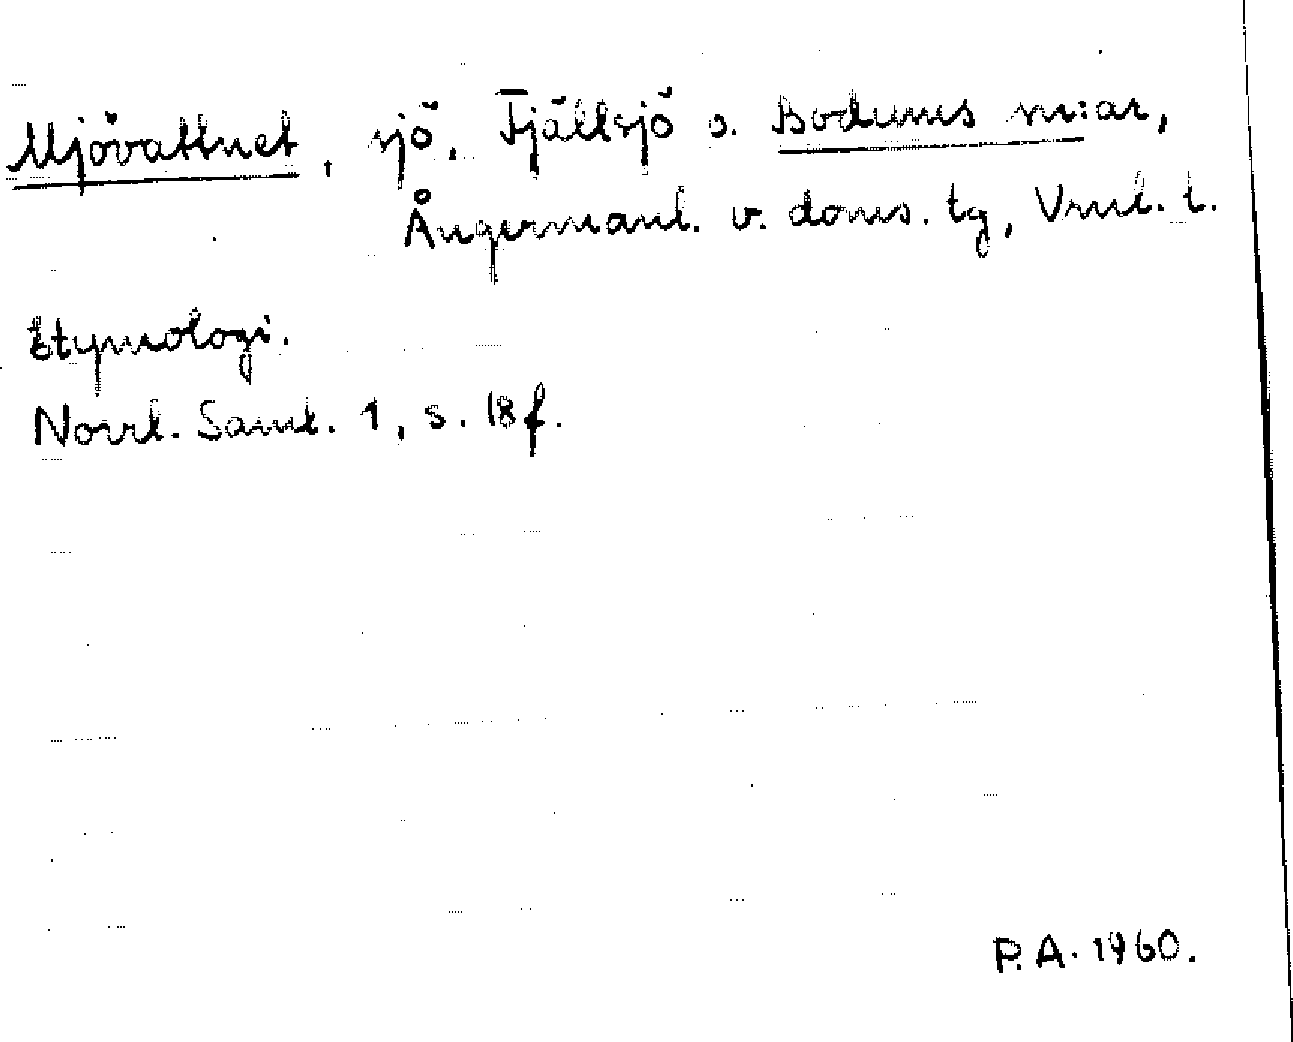 Mjövattnet, sjö, Fjällsjö o. Bodums sn:ar,
Ångermanl. v. doms. tg, Vrnl. l.
Etymologi.
Norrl. Saml. 1, s. 18 f.
P. A. 1960.